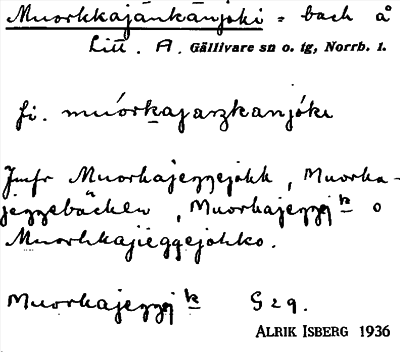 Muorkkajänkänjoki = bach å
Litt. A. Gällivare sn o. tg, Norrb. l.
fi. muórkajaŋkanjóki
Jmfr Muorkajeggejokk, Muorka-
jeggebäcken, Muorkajeggej k o
Muorkkajieggejokko.
Muorkajeggej k G29.
ALRIK ISBERG 1936